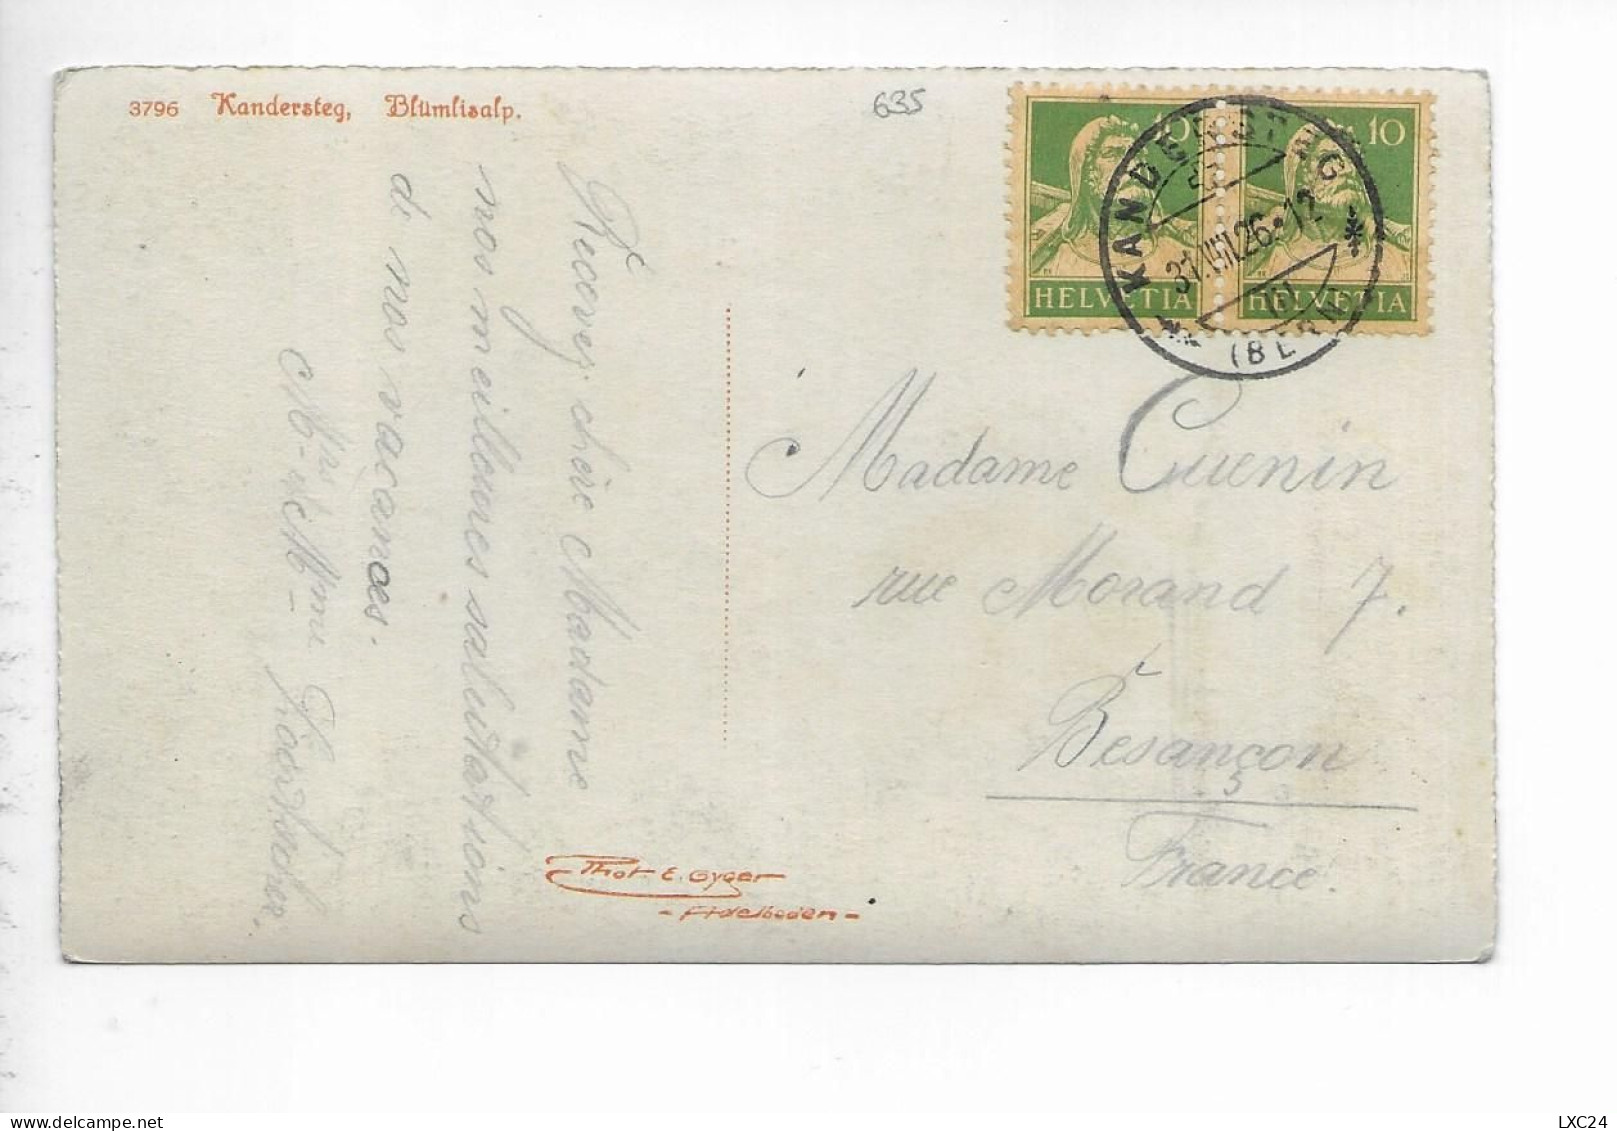 3796 Kandersteg, Blümlisalp.
635
10
10
HELVETIA
HELVETIA
KANDERSTEG
31.VIII.26.12
(BERN)
Recevez chère Madame
nos meilleures salutations
de nos vacances.
Mr et Mme
Madame Cuenin
rue Morand 7.
Besançon
France.
Phot E. Gyger
- Adelboden -
delcampe.net
LXC24